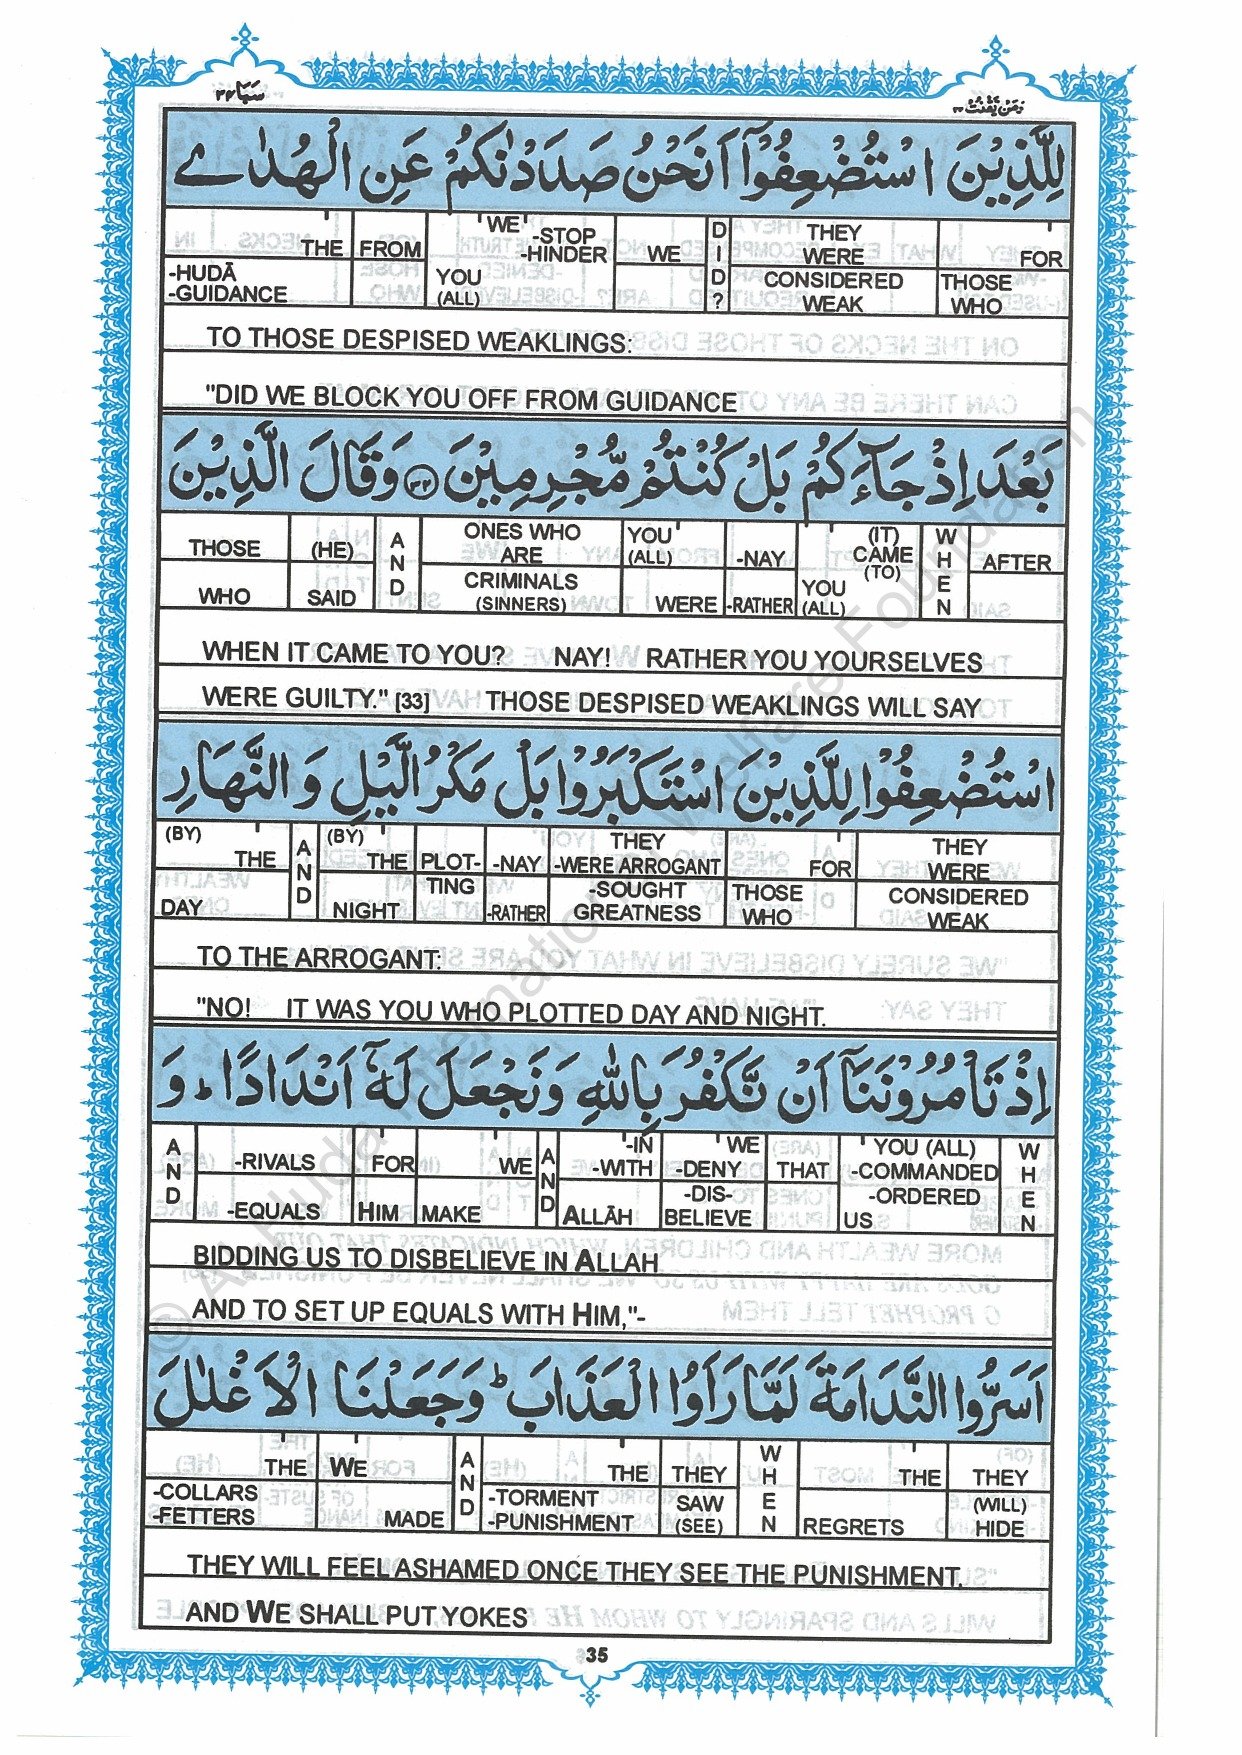 سَبَا ٣٤
وَمَنْ يَّقْنُتْ ٢٢
لِلَّذِيْنَ اسْتُضْعِفُوْۤا اَنَحْنُ صَدَدْنٰكُمْ عَنِ الْهُدٰے
THE FROM 'WE' -STOP -HINDER WE DID? THEY WERE FOR
-HUDĀ -GUIDANCE YOU (ALL) CONSIDERED WEAK THOSE WHO
TO THOSE DESPISED WEAKLINGS:
"DID WE BLOCK YOU OFF FROM GUIDANCE
بَعْدَ اِذْ جَآءَكُمْ بَلْ كُنْتُمْ مُّجْرِمِيْنَ ﴿٣٢﴾ وَقَالَ الَّذِيْنَ
THOSE (HE) AND ONES WHO ARE YOU (ALL) -NAY (IT) CAME (TO) WHEN AFTER
WHO SAID CRIMINALS (SINNERS) WERE -RATHER YOU (ALL)
WHEN IT CAME TO YOU? NAY! RATHER YOU YOURSELVES
WERE GUILTY." [33] THOSE DESPISED WEAKLINGS WILL SAY
اسْتُضْعِفُوْا لِلَّذِيْنَ اسْتَكْبَرُوْا بَلْ مَكْرُ الَّيْلِ وَالنَّهَارِ
(BY) THE AND (BY) THE PLOT- -NAY THEY -WERE ARROGANT FOR THEY WERE
DAY NIGHT TING -RATHER -SOUGHT GREATNESS THOSE WHO CONSIDERED WEAK
TO THE ARROGANT:
"NO! IT WAS YOU WHO PLOTTED DAY AND NIGHT.
اِذْ تَاْمُرُوْنَنَاۤ اَنْ نَّكْفُرَ بِاللّٰهِ وَنَجْعَلَ لَهٗۤ اَنْدَادًا ؕ وَ
AND -RIVALS FOR WE AND -IN -WITH WE -DENY THAT YOU (ALL) -COMMANDED -ORDERED WHEN
-EQUALS HIM MAKE ALLĀH -DIS- BELIEVE US
BIDDING US TO DISBELIEVE IN ALLAH
AND TO SET UP EQUALS WITH HIM,"-
اَسَرُّوا النَّدَامَةَ لَمَّا رَاَوُا الْعَذَابَ ؕ وَجَعَلْنَا الْاَغْلٰلَ
THE WE AND THE THEY WHEN THE THEY
-COLLARS -FETTERS MADE -TORMENT -PUNISHMENT SAW (SEE) REGRETS (WILL) HIDE
THEY WILL FEEL ASHAMED ONCE THEY SEE THE PUNISHMENT.
AND WE SHALL PUT YOKES
35
© AL Huda International Welfare Foundation